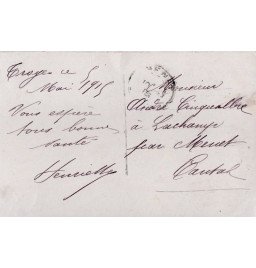 Troyes ce 5
Mai 1915
Vous espère
tous bonne
santé
Henriette
Monsieur
André Cinqualbre
à Lachamp
par Menet
Cantal